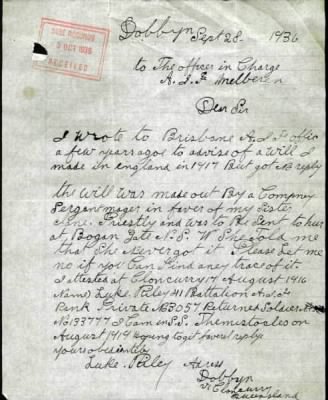 Dobbyn Sept 28. 1936
BASE RECORDS
5 OCT 1936
RECEIVED
to The officer in Charge
A.I.F. Melbern
Dear Sir
I wrote to Brisbane A.I.F offic
a few years agoe to advise of a will I
made in england in 1917 But got No reply
the will was made out By a Compney
Sergant mager in faver of my Sister
Mrs. Priestly and was to Be Sent to hur
at Bogan Gate N.S. W She Told me
that She Never got it Please Let me
no if you Can Find aney trace of it.
I attested at Cloncurry 17 August 1916
Name Luke Riley 41 Battalion A.I.F.
Rank Private No 3057 Returned Solaier
No 133777 I Cam in S.S. Themistocles on
August 1919 Hoping to git faverl reply
yours obediently
Luke Riley Adress
Dobbyn
Via Cloncurry
Queensland